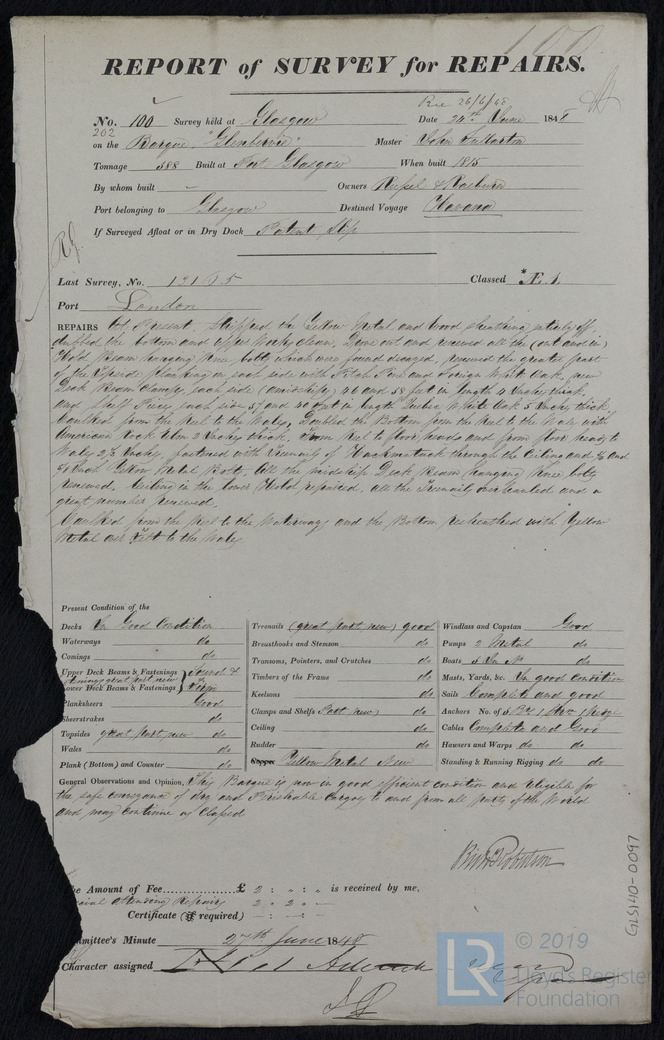 100
REPORT of SURVEY for REPAIRS.
Rec 26/6/48
No. 100 Survey held at Glasgow Date 24th June 1848
202
on the Barque "Glenbervie" Master John Fullarton
Tonnage 388 Built at Port Glasgow When built 1815
By whom built Owners Russel & Raeburn
Port belonging to Glasgow Destined Voyage Havana
If Surveyed Afloat or in Dry Dock Patent Slip
Last Survey, No. 13165 Classed *Æ 1
Port London
REPAIRS At Present, Stripped the Yellow Metal and Wood sheathing entirely off
dubbed the bottom and upper works clean, Drove out and renewed all the (out and in)
Hold Beam hanging Knee bolts which were found decayed, renewed the greater part
of the Topside planking on each side with Pitch Pine and Foreign White Oak, new
Deck Beam Clamps, each side (amidships) 40 and 38 feet in length 4 Inches thick,
and Shelf Piece each side 37 and 40 feet in length Quebec White Oak 5 Inches thick.
Caulked from the Keel to the Wales, Doubled the Bottom from the Keel to the Wales with
American Rock Elm 2 Inches thick, from Keel to floor heads and from floor heads to
Wales 2½ Inches, fastened with Treenails of Hackmatack through the Ceiling and
Yellow Metal Bolts, all the midship Deck Beam hanging Knee bolts
renewed, Ceiling in the lower Hold repaired, all the Treenails overhauled and a
great number renewed,
Caulked from the Keel to the Waterways and the Bottom resheathed with Yellow
Metal over Felt to the Wales
Present Condition of the
Decks In Good Condition
Waterways do
Comings do
Upper Deck Beams & Fastenings Sound &
fastenings great part new
Lower Deck Beams & Fastenings Firm
Planksheers Good
Sheerstrakes do
Topsides great part new do
Wales do
Plank (Bottom) and Counter do
Treenails (great part new) good
Breasthooks and Stemson do
Transoms, Pointers, and Crutches do
Timbers of the Frame do
Keelsons do
Clamps and Shelfs Part new do
Ceiling do
Rudder do
Copper Yellow Metal New
Windlass and Capstan Good
Pumps 2 Metal do
Boats 3 In No do
Masts, Yards, &c. In good condition
Sails Complete and good
Anchors No. of 3 Br 1 Strm 1 Kedge
Cables Complete and Good
Hawsers and Warps do do
Standing & Running Rigging do do
General Observations and Opinion, This Barque is now in good efficient condition and Eligible for
the safe conveyance of dry and Perishable Cargoes to and from all parts of the World
and may continue as Classed
Robertson
The Amount of Fee £ 2 : " : " is received by me,
Special Attending Repairs 2 - 2 -
Certificate (if required)
Committee's Minute 27th June 1848
Character assigned
GLS140-0097
LR
© 2019
Lloyd's Register
Foundation